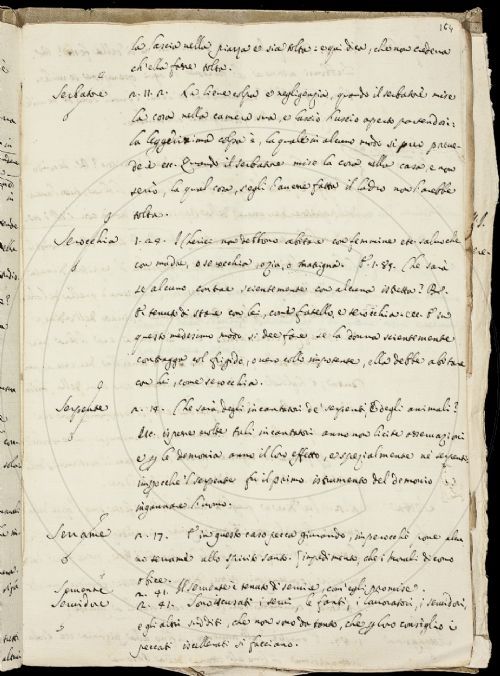 164
la lascia nella piazza e sia tolta: equi dica, che non credeva
ch'ella fosse tolta.
Serbatore n. 11. 2. La lieve colpa e negligenzia, quando il serbatore mise
la cosa nella camera sua, e lascio l'uscio aperto partendosi:
la leggerissima colpa è, la quale in alcuno modo si può preve-
dere ecc. Quando il serbatore mise la cosa nella casa, e non
serrò, la qual cosa, s'egli l'avesse fatta il ladro non l'avrebbe
tolta.
Serocchia 1. 29. I Cherici non debbono abitare con femmine etc. salvo che
con madre, o serocchia, o zia, o matrigna. E 1. 85. Che sarà
se alcuno contrae scientemente con alcuna istretta? Ris.
È tenuto di stare con lei, come fratello, e serocchia. ecc. E in
questo medesimo modo si dee fare, se la donna scientemente
contragga col frigido, overo collo impotente, ella debbe abitare
con lui, come serocchia.
Serpente n. 19. Che sarà degli incantatori de' serpenti, e degli animali?
ecc. ispesse molte tali incantatori anno non licite osservazioni
e le demonia anno il loro effetto, e spezialmente ne' serpenti
impocchè 'l serpente fu il primo istrumento del demonio
ingannare l'uomo.
n. 17. E in questo caso pecca giurando, imperocchè pone alcu-
no allo spirito santo. impedimento, che i
n. 41. Il è tenuto di servire, com'egli promise.
Servidore n. 41. Sono scusati i servi, le fanti, i lavoratori, i servidori,
e gli altri sudditi, che non sono da tanto, che loro consiglio i
peccati iscellerati si facciano.